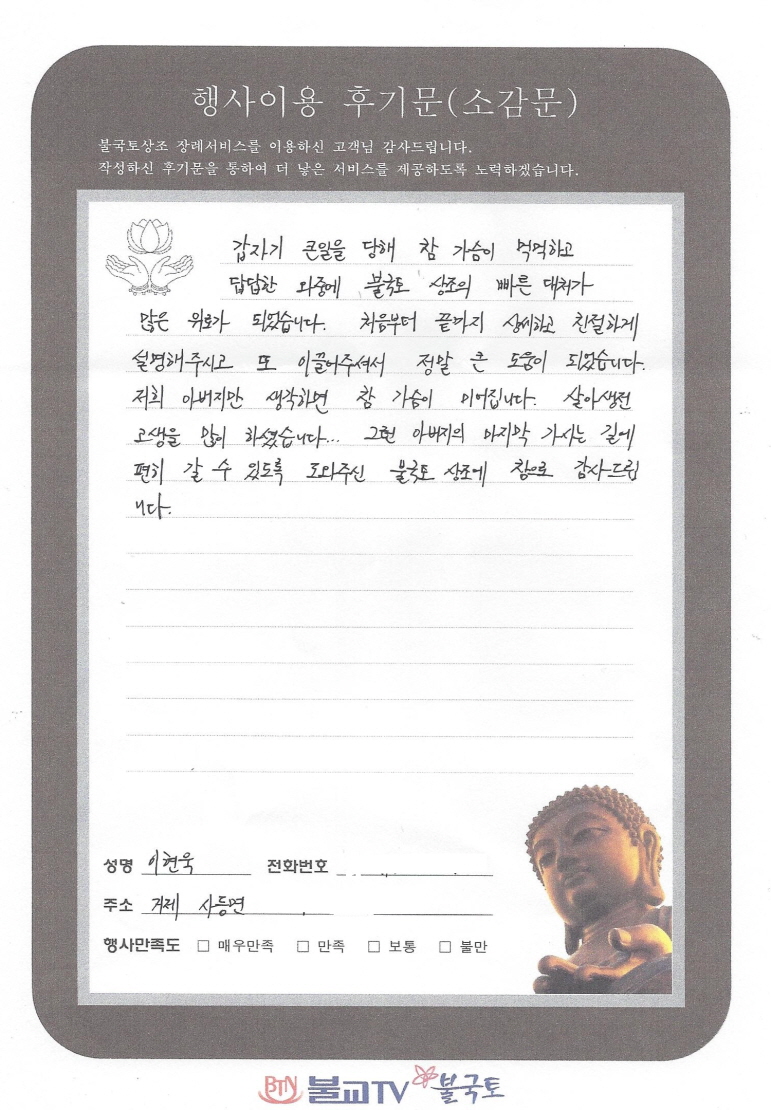 행사이용 후기문(소감문)
불국토상조 장례서비스를 이용하신 고객님 감사드립니다.
작성하신 후기문을 통하여 더 낳은 서비스를 제공하도록 노력하겠습니다.
갑자기 큰일을 당해 참 가슴이 먹먹하고
답답한 와중에 불국토 상조의 빠른 대처가
많은 위로가 되었습니다. 처음부터 끝까지 상세하고 친절하게
설명해주시고 또 이끌어주셔서 정말 큰 도움이 되었습니다.
저희 아버지만 생각하면 참 가슴이 미어집니다. 살아생전
고생을 많이 하셨습니다... 그런 아버지의 마지막 가시는 길에
편히 갈 수 있도록 도와주신 불국토 상조에 참으로 감사드립
니다.
성명 이현욱 전화번호
주소 거제 사등면
행사만족도 □ 매우만족 □ 만족 □ 보통 □ 불만
BTN 불교TV 불국토